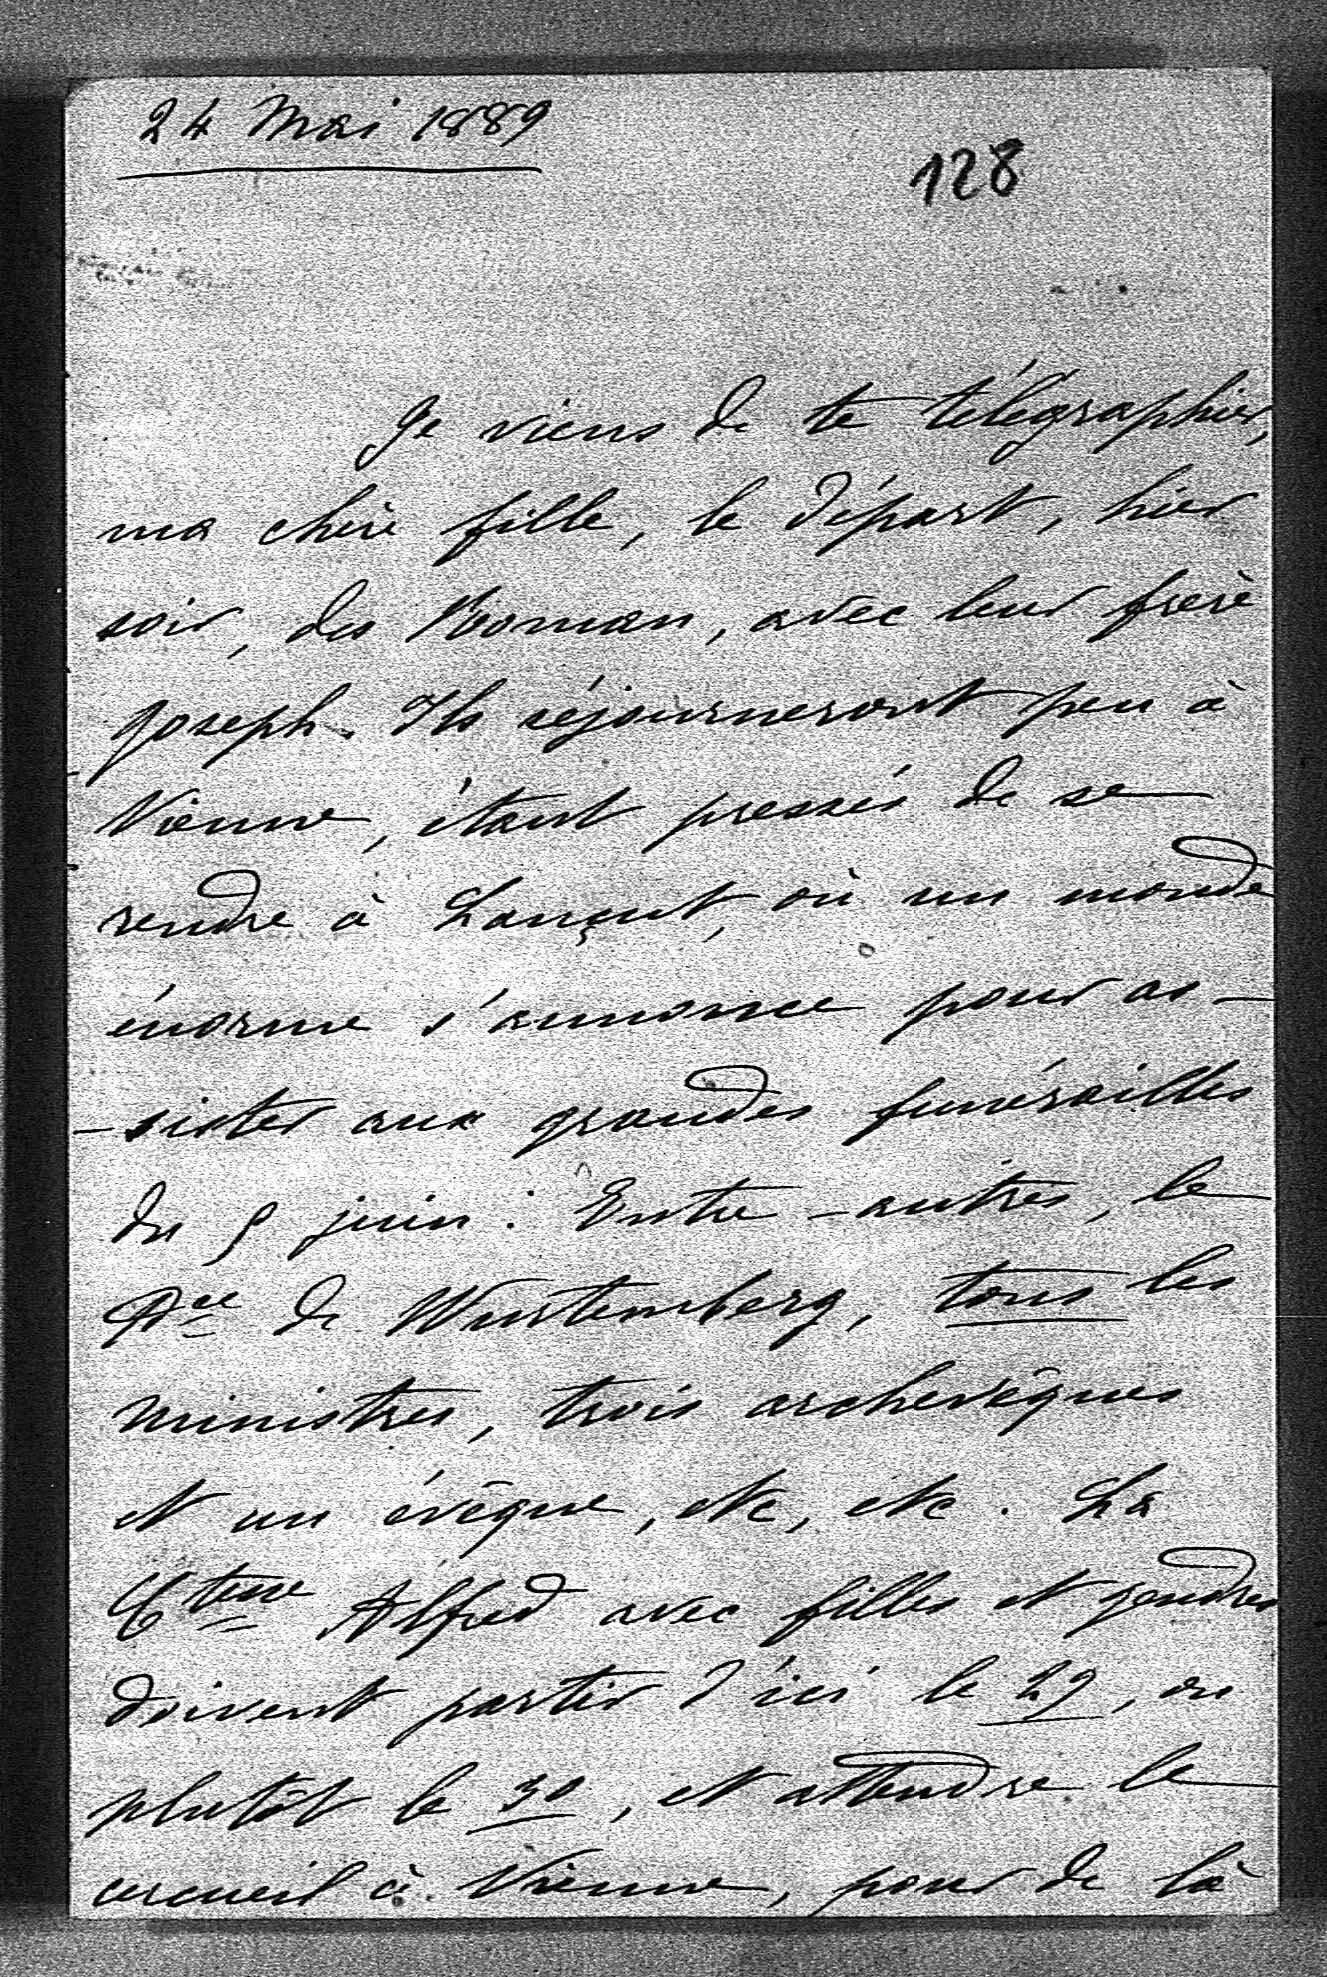 24 Mai 1889
128
Je viens de te télégraphier,
ma chère fille, le départ, hier
soir, des Roman, avec leur frère
Joseph. Ils séjourneront peu à
Vienne, étant pressés de se
rendre à Lançut, où un monde
énorme s'annonce pour as-
-sister aux grandes funérailles
du 5 juin. Entre-autres, le
de Wurtemberg, tous les
ministres, trois archevêques
et un évêque, etc, etc. La
Ctesse Alfred avec filles et gendres
doivent partir d'ici le 29, ou
plutôt le 30, et attendre le
cercueil à Vienne, pour de là